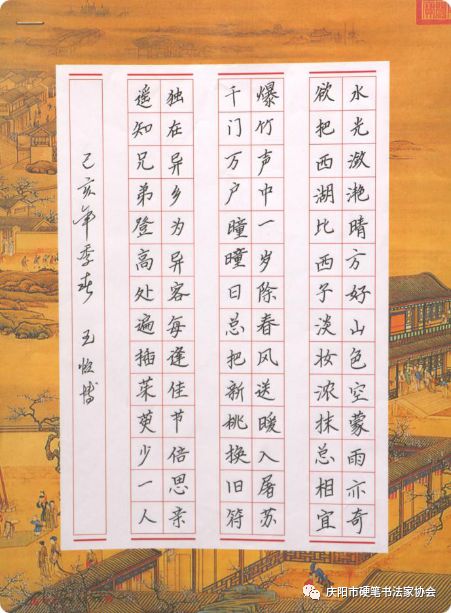 水光潋滟晴方好山色空蒙雨亦奇
欲把西湖比西子淡妆浓抹总相宜
爆竹声中一岁除春风送暖入屠苏
千门万户瞳瞳日总把新桃换旧符
独在异乡为异客每逢佳节倍思亲
遥知兄弟登高处遍插茱萸少一人
己亥年季春 王 博
庆阳市硬笔书法家协会